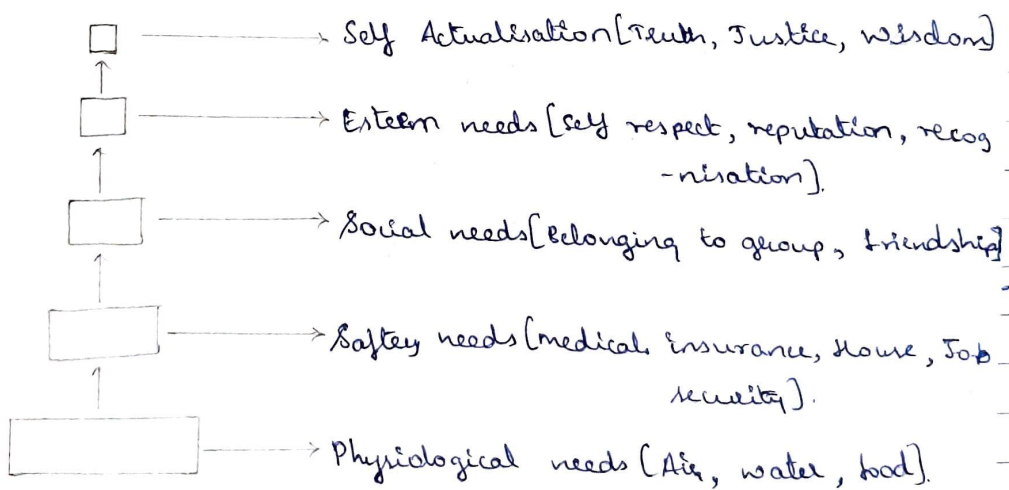 Self Actualisation [Truth, Justice, wisdom]
Esteem needs [Self respect, reputation, recog
-nisation].
Social needs [Belonging to group, friendship]
Saftey needs [medical insurance, House, Job
security].
Physiological needs [Air, water, food].